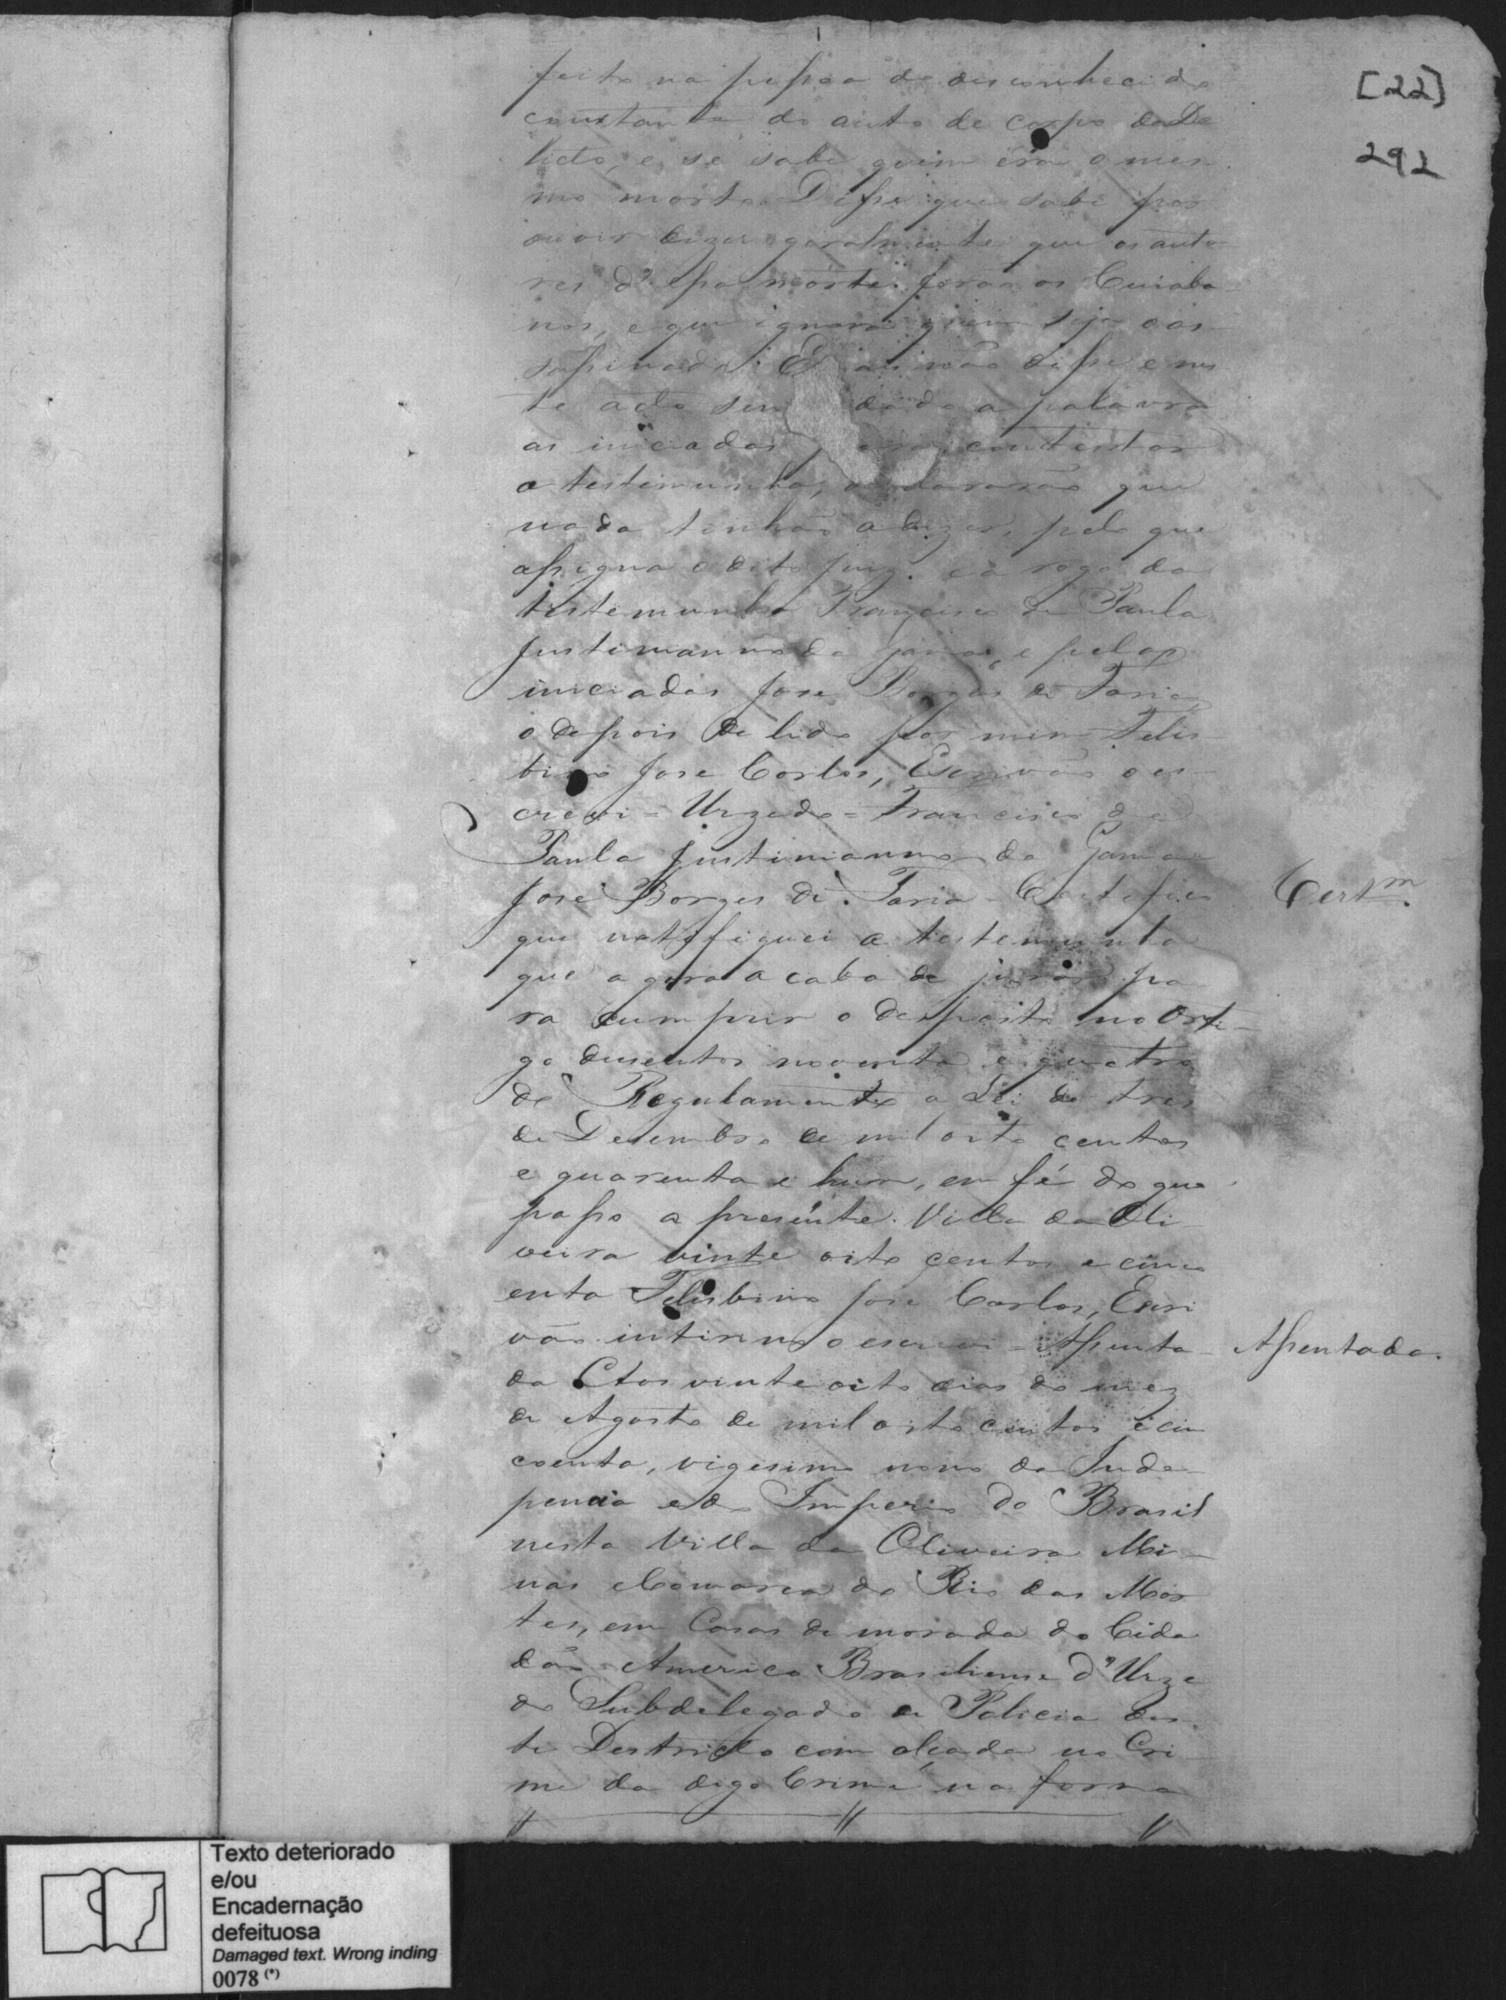 [22]
292
feito na pessoa do desconhecido
constante do auto de corpo de De
licto, e se sabe quem era o mes
mo morto. Disse que sabe por
ouvir dizer geralmente que os auto
res d'essa morte forão os Cuiaba
nos, e que ignora quem seja o as
sassinado. E mais não disse e nes
te acto sen dado a palavra
as iniciadas para contestar
a testemunha, declararão que
nada tinhão a dizer, pelo que
assigna o dito Juiz. e a rogo da
testemunha Francisco de Paula
Justinianno da Gama, e pelas
iniciadas Jose Borges de Faria,
e depois de lido por mim Felis
bino Jose Carlos, Escrivão o es
crevi = Urzedo = Francisco de
Paula Justinianno da Gama
José Borges de Faria - Certefico
Certm.
que notifiquei a testemunha
que agora acaba de jurar pa
ra cumprir o desposto no Arti
go dusentos noventa e quatro
do Regulamento a Lei de tres
de Desembro de mil oito centos
e quarenta e hum, em fé do que
passo a presente. Villa da Oli
veira vinte oito centos e cinco
enta Felisbino Jose Carlos, Escri
vão intirino o escrevi = Assenta
Assentada.
da Aos vinte oito dias do mez
de Agosto de mil oito centos e cin
coenta, vigesimo nono da Inde
pencia e do Imperio do Brasil
nesta Villa da Oliveira Mi
nas Comarca do Rio das Mor
tes, em Casas de morada do Cida
dão Americo Brasiliense d'Urze
do Subdelegado de Policia des
te Destricto com alçada no Cri
me da digo Crime na forma
Texto deteriorado
e/ou
Encadernação
defeituosa
Damaged text. Wrong inding
0078 (*)